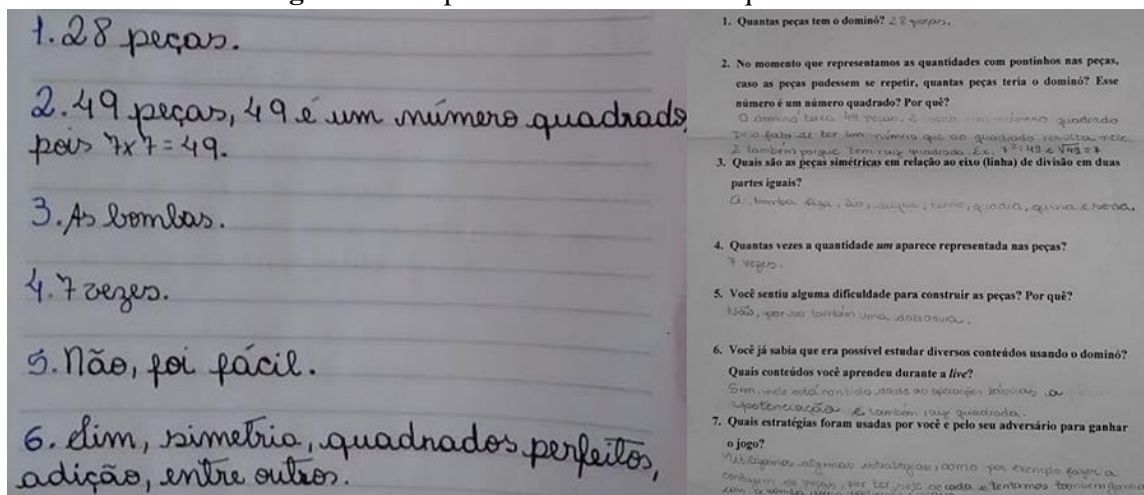 1. 28 peças.
2. 49 peças, 49 é um número quadrado,
pois 7x7=49.
3. As bombas.
4. 7 vezes.
5. Não, foi fácil.
6. Sim, simetria, quadrados perfeitos,
adição, entre outros.
1. Quantas peças tem o dominó? 28 peças.
2. No momento que representamos as quantidades com pontinhos nas peças,
caso as peças pudessem se repetir, quantas peças teria o dominó? Esse
número é um número quadrado? Por quê?
O dominó teria 49 peças. E seria um número quadrado
pelo fato de ter um número que ao quadrado resulta nele.
E também porque tem raiz quadrada. Ex. 7²=49 e √49=7
3. Quais são as peças simétricas em relação ao eixo (linha) de divisão em duas
partes iguais?
A bomba, duque, terno, quadra, quina e sena.
4. Quantas vezes a quantidade um aparece representada nas peças?
7 vezes.
5. Você sentiu alguma dificuldade para construir as peças? Por quê?
Não, por também uma
6. Você já sabia que era possível estudar diversos conteúdos usando o dominó?
Quais conteúdos você aprendeu durante a live?
Sim, nele está contido desde as operações básicas a
potenciação e também raiz quadrada.
7. Quais estratégias foram usadas por você e pelo seu adversário para ganhar
o jogo?
Utilizamos algumas estratégias, como por exemplo fazer a
contagem de peças, por ter sete de cada e tentamos também